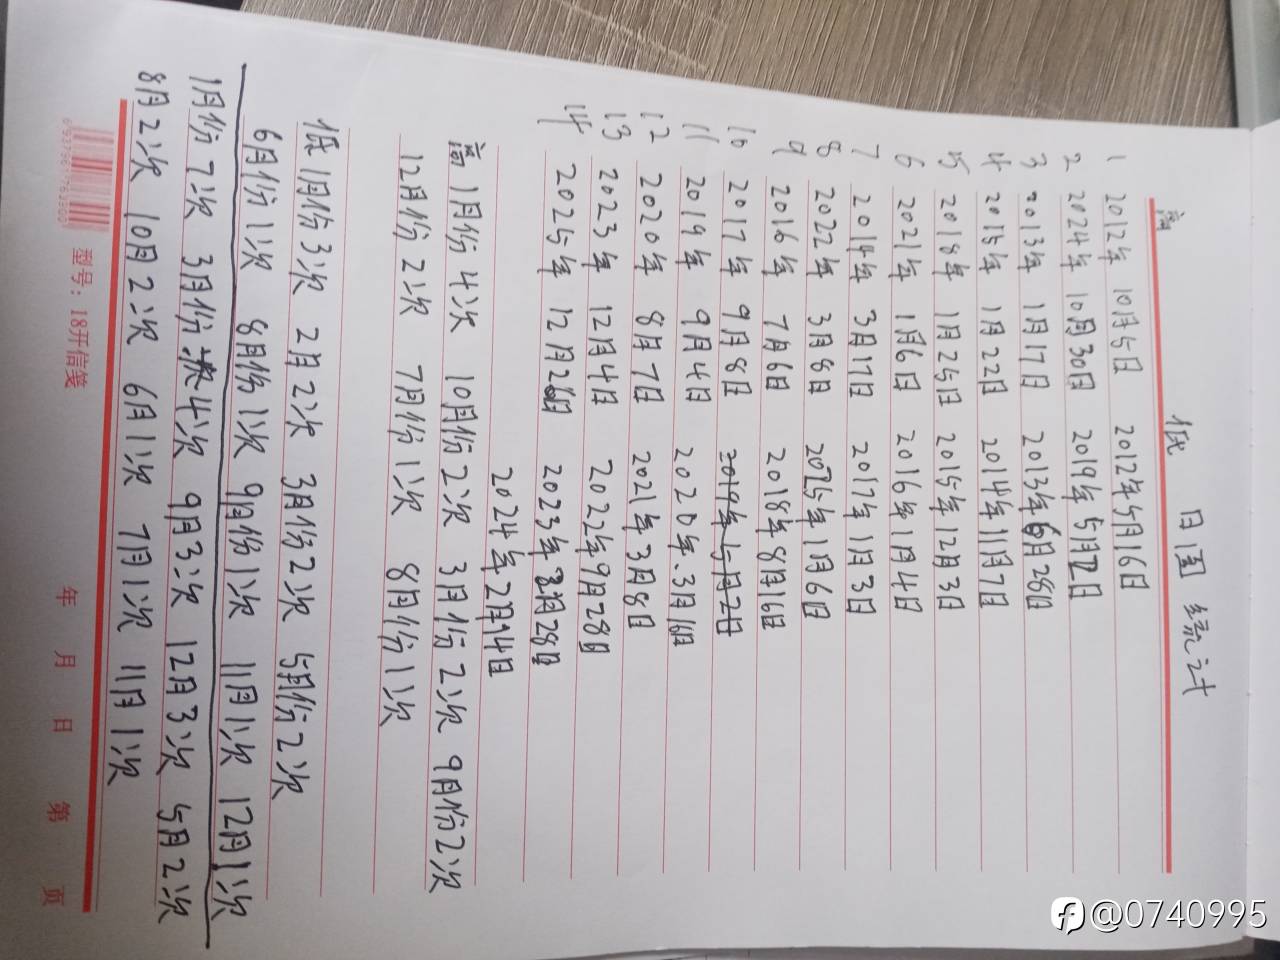 日园统计
高 低
1 2012年 10月5日 2012年5月16日
2 2024年 10月30日 2019年 5月12日
3 2013年 1月17日 2013年6月28日
4 2015年 1月22日 2014年11月7日
5 2018年 1月25日 2015年12月3日
6 2021年 1月6日 2016年1月4日
7 2014年 3月17日 2017年1月3日
8 2022年 3月8日 2025年1月6日
9 2016年 7月6日 2018年8月16日
10 2017年 9月8日 2019年5月2日
11 2019年 9月4日 2020年.3月16日
12 2020年 8月7日 2021年3月8日
13 2023年 12月4日 2022年9月28日
14 2025年 12月26日 2023年2月28日
2024年2月14日
高 1月份 4次 10月份2次 3月份2次 9月份2次
12月份 2次 7月份1次 8月份1次
低 1月份3次 2月2次 3月份2次 5月份2次
6月份1次 8月份1次 9月份1次 11月1次 12月1次
1月份 7次 3月份 4次 9月3次 12月3次 5月2次
8月2次 10月2次 6月1次 7月1次 11月1次
型号：18开信笺 年 月 日 第 页
@0740995